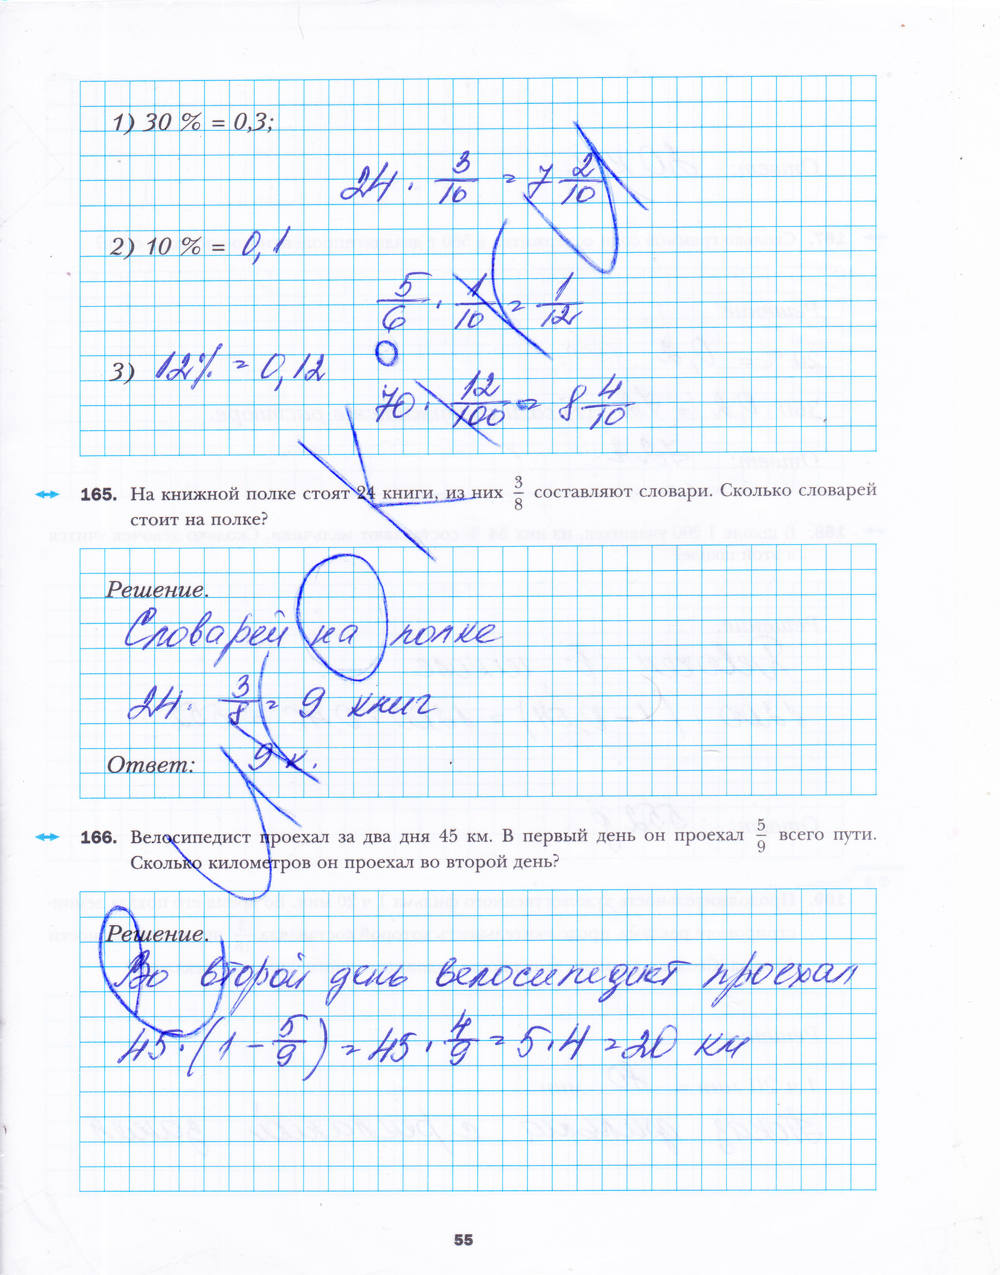 1) 30 % = 0,3;
24 · 3/10 = 7 2/10
2) 10 % = 0,1
5/6 · 1/10 = 1/12
3) 12% = 0,12
70 · 12/100 = 8 4/10
165. На книжной полке стоят 24 книги, из них 3/8 составляют словари. Сколько словарей
стоит на полке?
Решение.
Словарей на полке
24 · 3/8 = 9 книг
Ответ: 9 к.
166. Велосипедист проехал за два дня 45 км. В первый день он проехал 5/9 всего пути.
Сколько километров он проехал во второй день?
Решение.
Во второй день велосипедист проехал
45 · (1 - 5/9) = 45 · 4/9 = 5 · 4 = 20 км
55